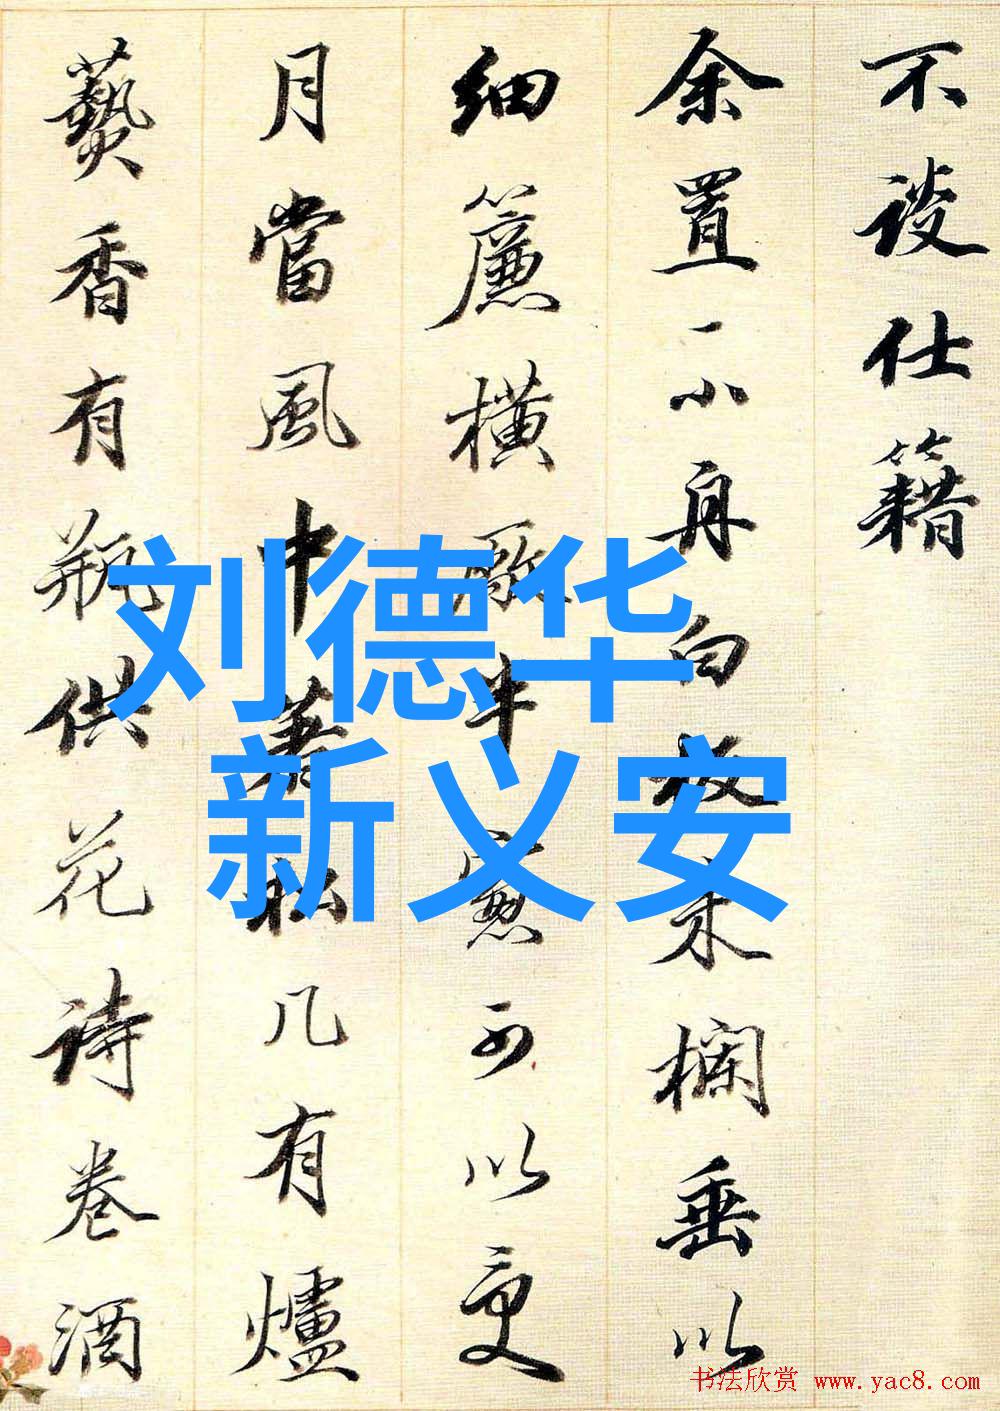 不談仕籍
余置一小舟白板朱欄垂以
細簾橫歌半窻可以更
月當風中著松几有爐
藝香有瓶供花詩卷酒
刘德华
新义安
书法欣赏 www.yac8.com